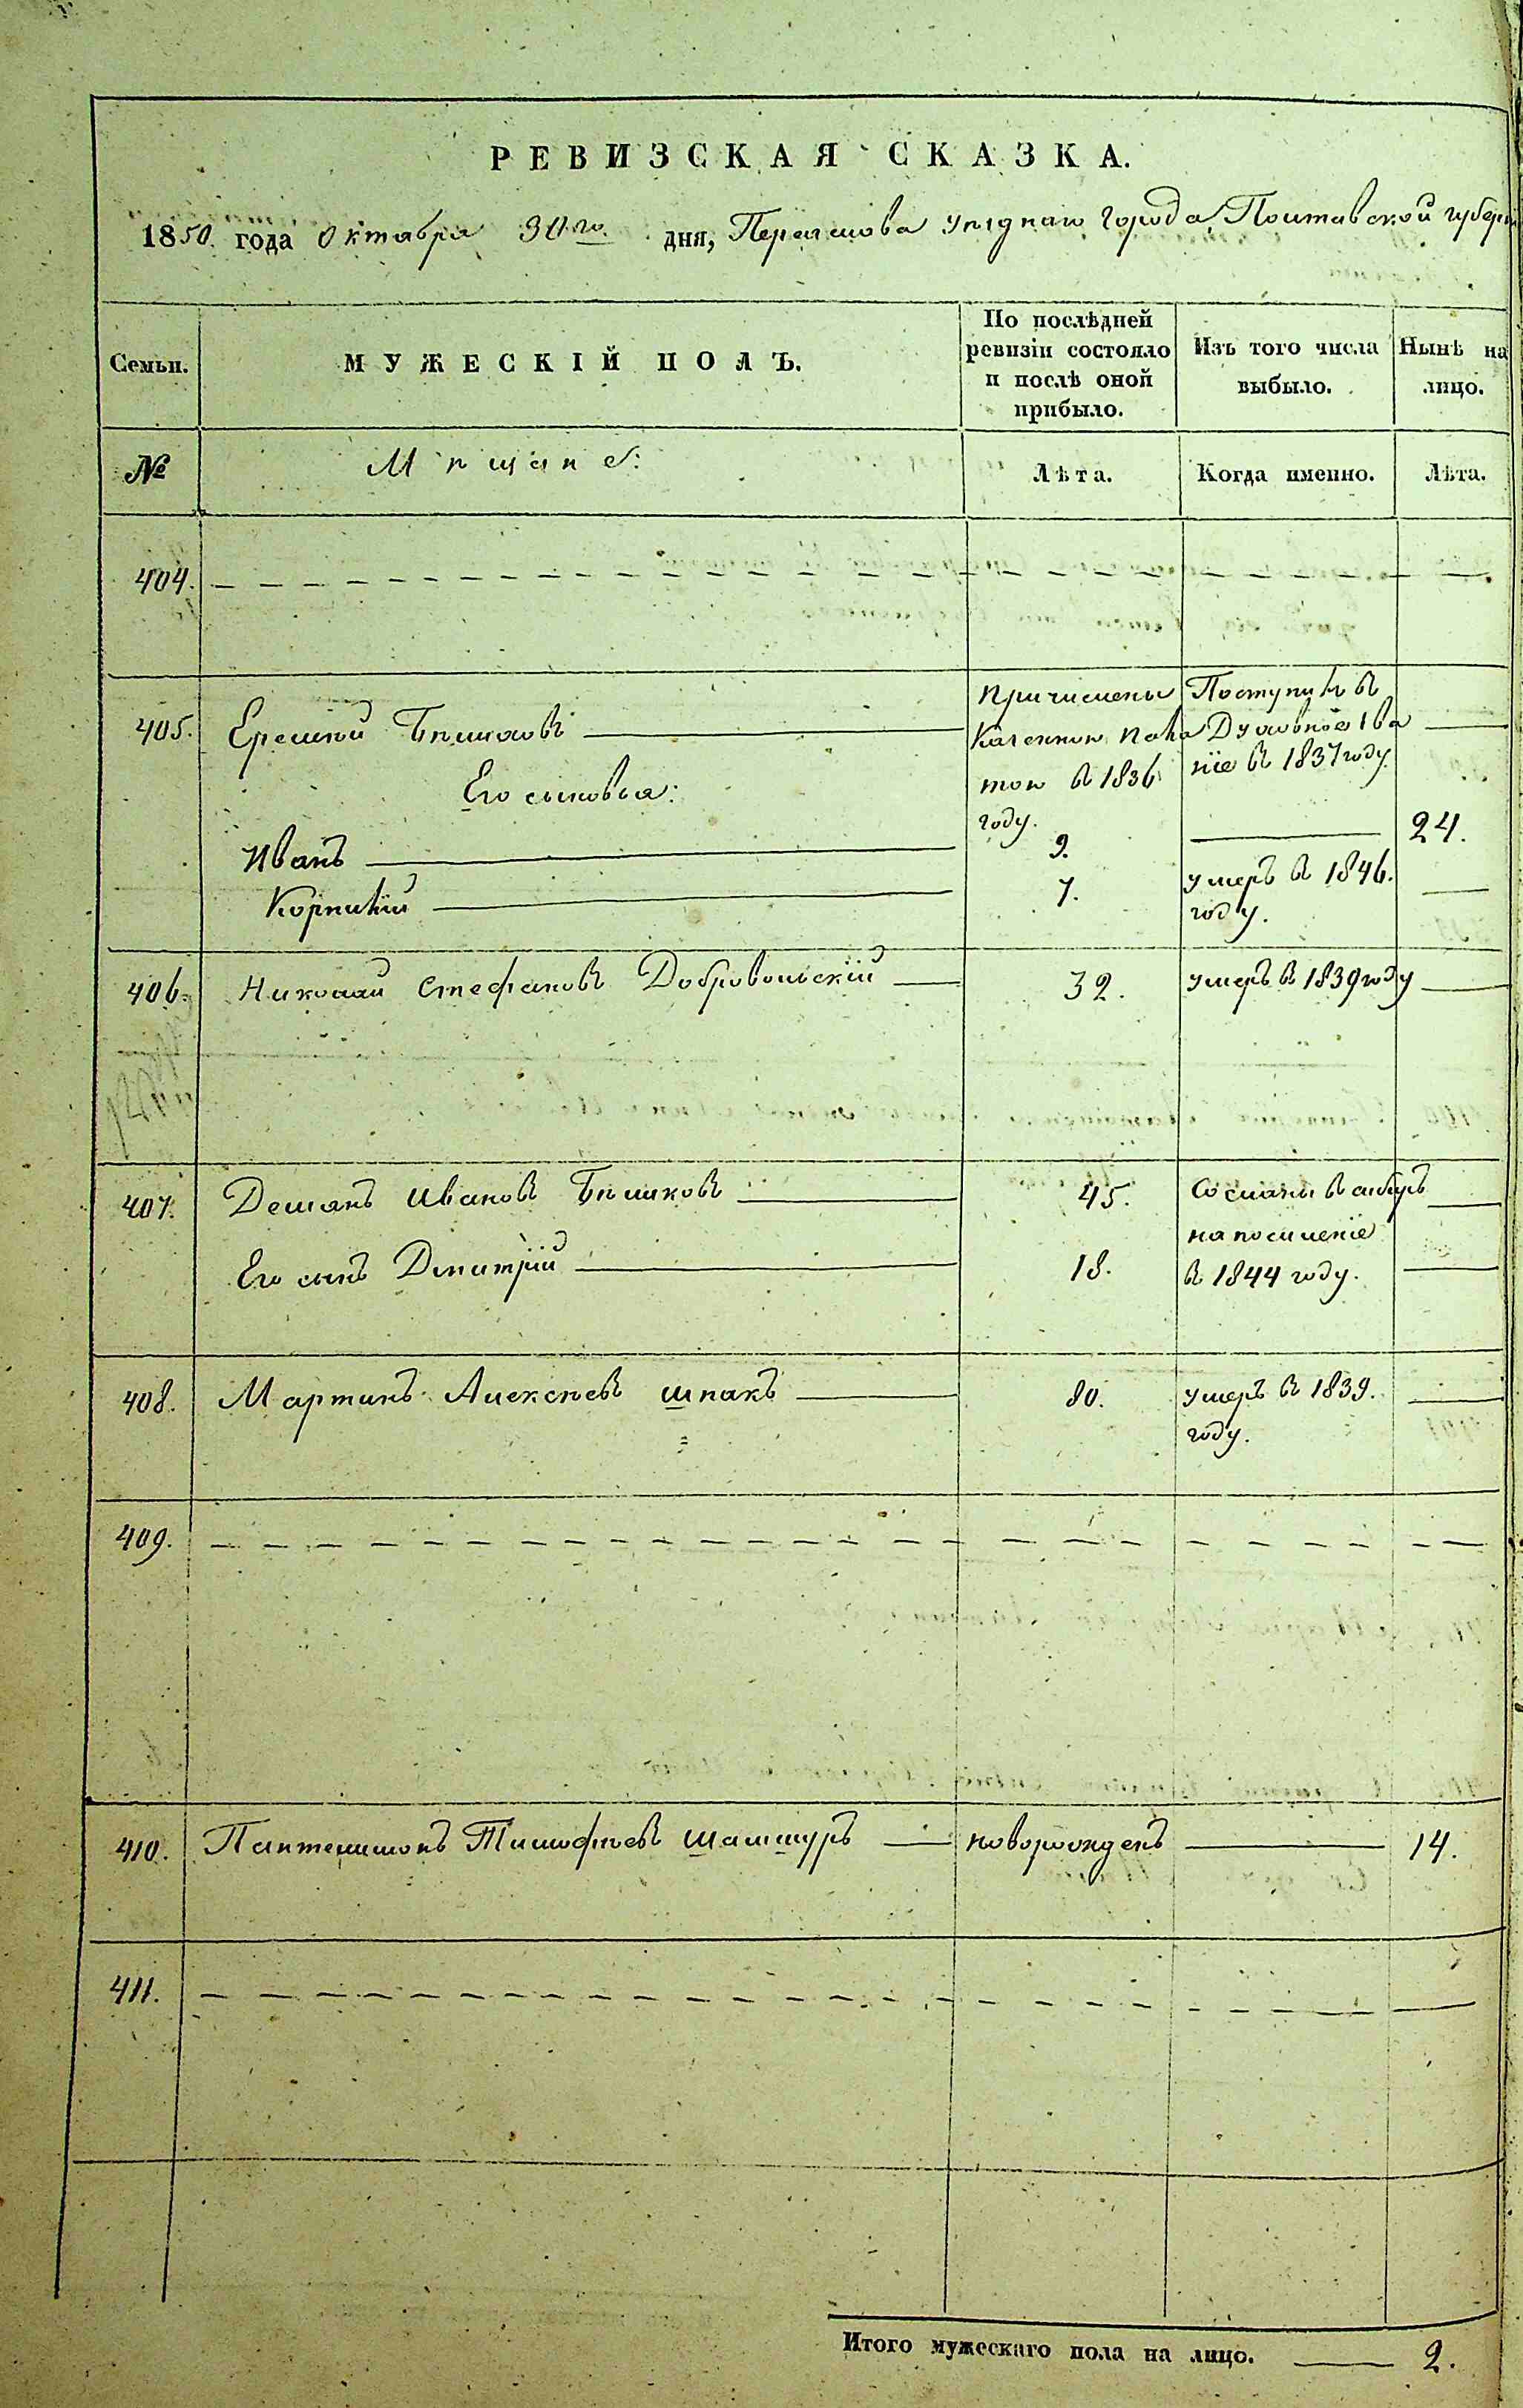 РЕВИЗСКАЯ СКАЗКА.
1850. года Октября 30го. дня, Переяслова уѣзднаго города, Полтавской губерн
Семьи.
МУЖЕСКІЙ ПОЛЪ.
По послѣдней ревизіи состояло и послѣ оной прибыло.
Изъ того числа выбыло.
Нынѣ на лицо.
№
Мѣщане:
Лѣта.
Когда именно.
Лѣта.
404.
405. Еремѣй Бѣликовъ
причислены Казенною Пала тою в 1836 году.
Поступилъ в Духовное Зва ніе в 1837 году.
Его сыновья:
Иванъ 9. 24.
Корнилій 7. умеръ в 1846. году.
406. Николай Стефановъ Добровольскій 32. умеръ в 1839 году
407. Демянъ Ивановъ Бѣликовъ 45. Сосланы в
Его сынъ Дмитрій 18. на поселеніе в 1844 году.
408. Мартинъ Алексѣевъ шпакъ 80. умеръ в 1839. году.
409.
410. Пантелимонъ Тимофѣевъ новорожденъ 14.
411.
Итого мужескаго пола на лицо. 2.